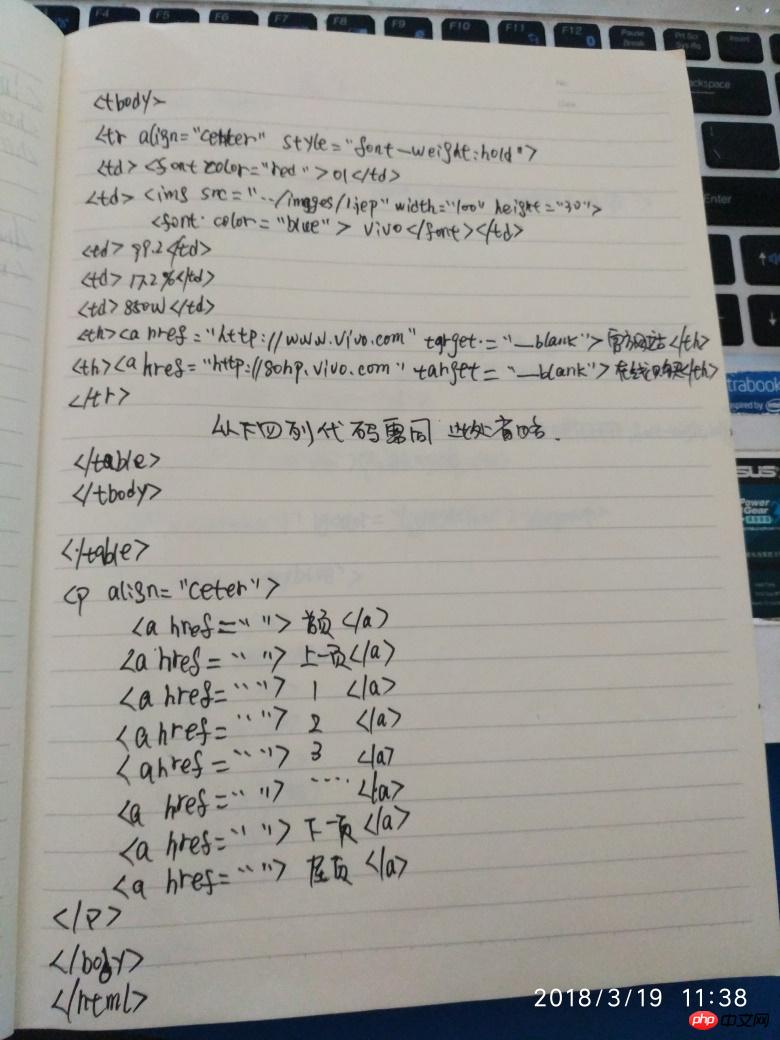 F4 F5 F6 F7 F8 F9 F10 F11 F12 Pause Break Prt Scr Sys Rq Insert
ckspace
Enter
<tbody>
<tr align="center" style="font-weight:hold">
<td><font color="red">01</td>
<td><img src="../imgges/1.jep" width="100" height="30">
<font color="blue"> vivo</font></td>
<td>99.2</td>
<td>17.2%</td>
<td>850W</td>
<th><a href="http://www.vivo.com" target="_blank">官方网站</th>
<th><a href="http://sohp.vivo.com" target="_blank">在线购买</th>
</tr>
以下四列代码雷同 此处省略.
</table>
</tbody>
</table>
<p align="ceter">
<a href=" ">首页</a>
<a href=" ">上一页</a>
<a href=" "> 1 </a>
<a href=" "> 2 </a>
<a href=" "> 3 </a>
<a href=" "> .... </a>
<a href=" ">下一页</a>
<a href=" ">尾页</a>
</p>
</body>
</html>
trabook
spired by
SUS
Power
Gear
2018/3/19 11:38
php 中文网